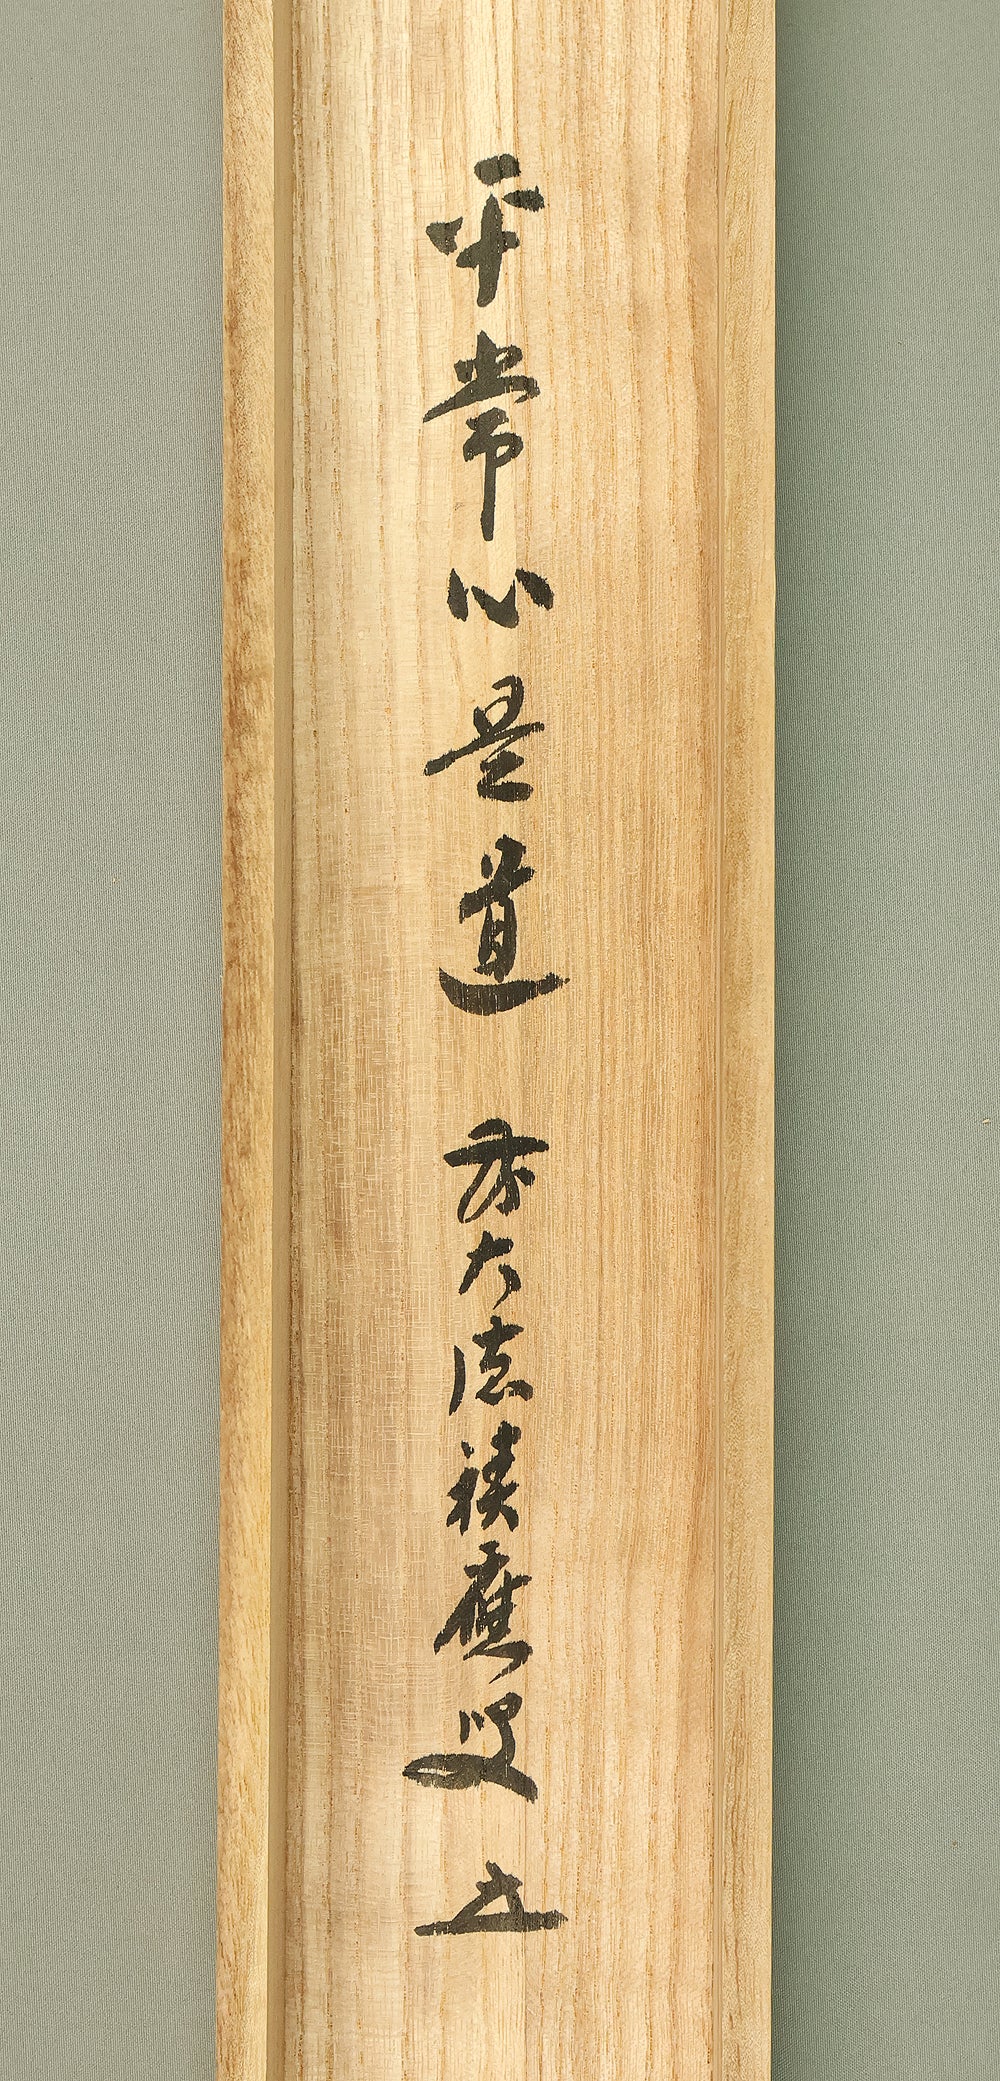 平常心是道　前大徳積應叟